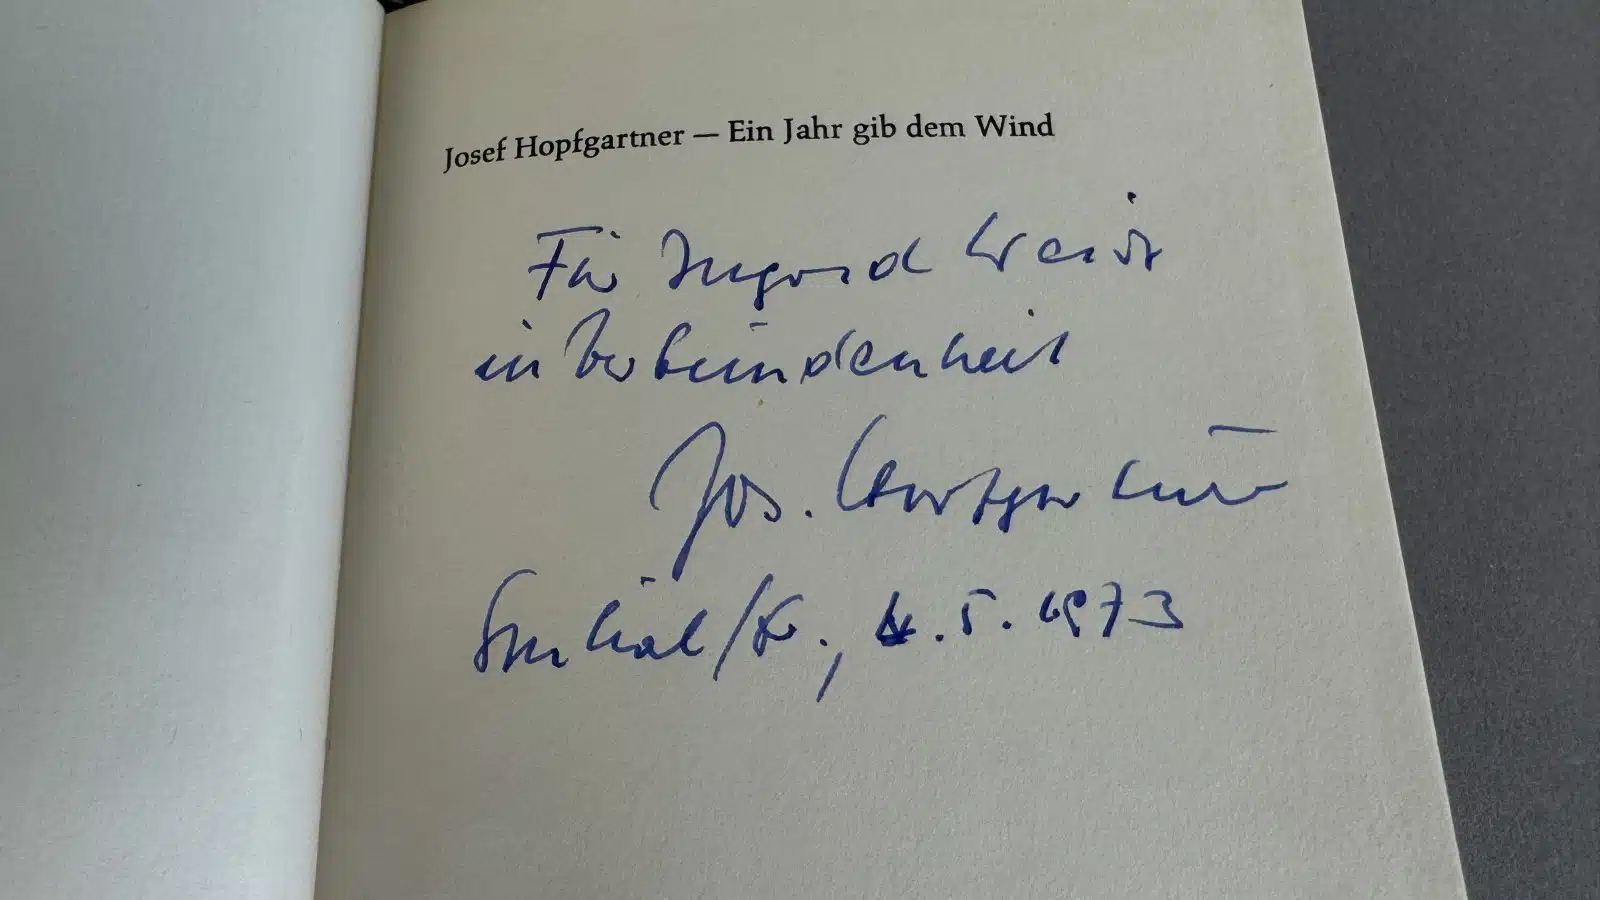 Josef Hopfgartner — Ein Jahr gib dem Wind
Für Ingrid
in Verbundenheit
Jos. Hopfgartner
5. 1973